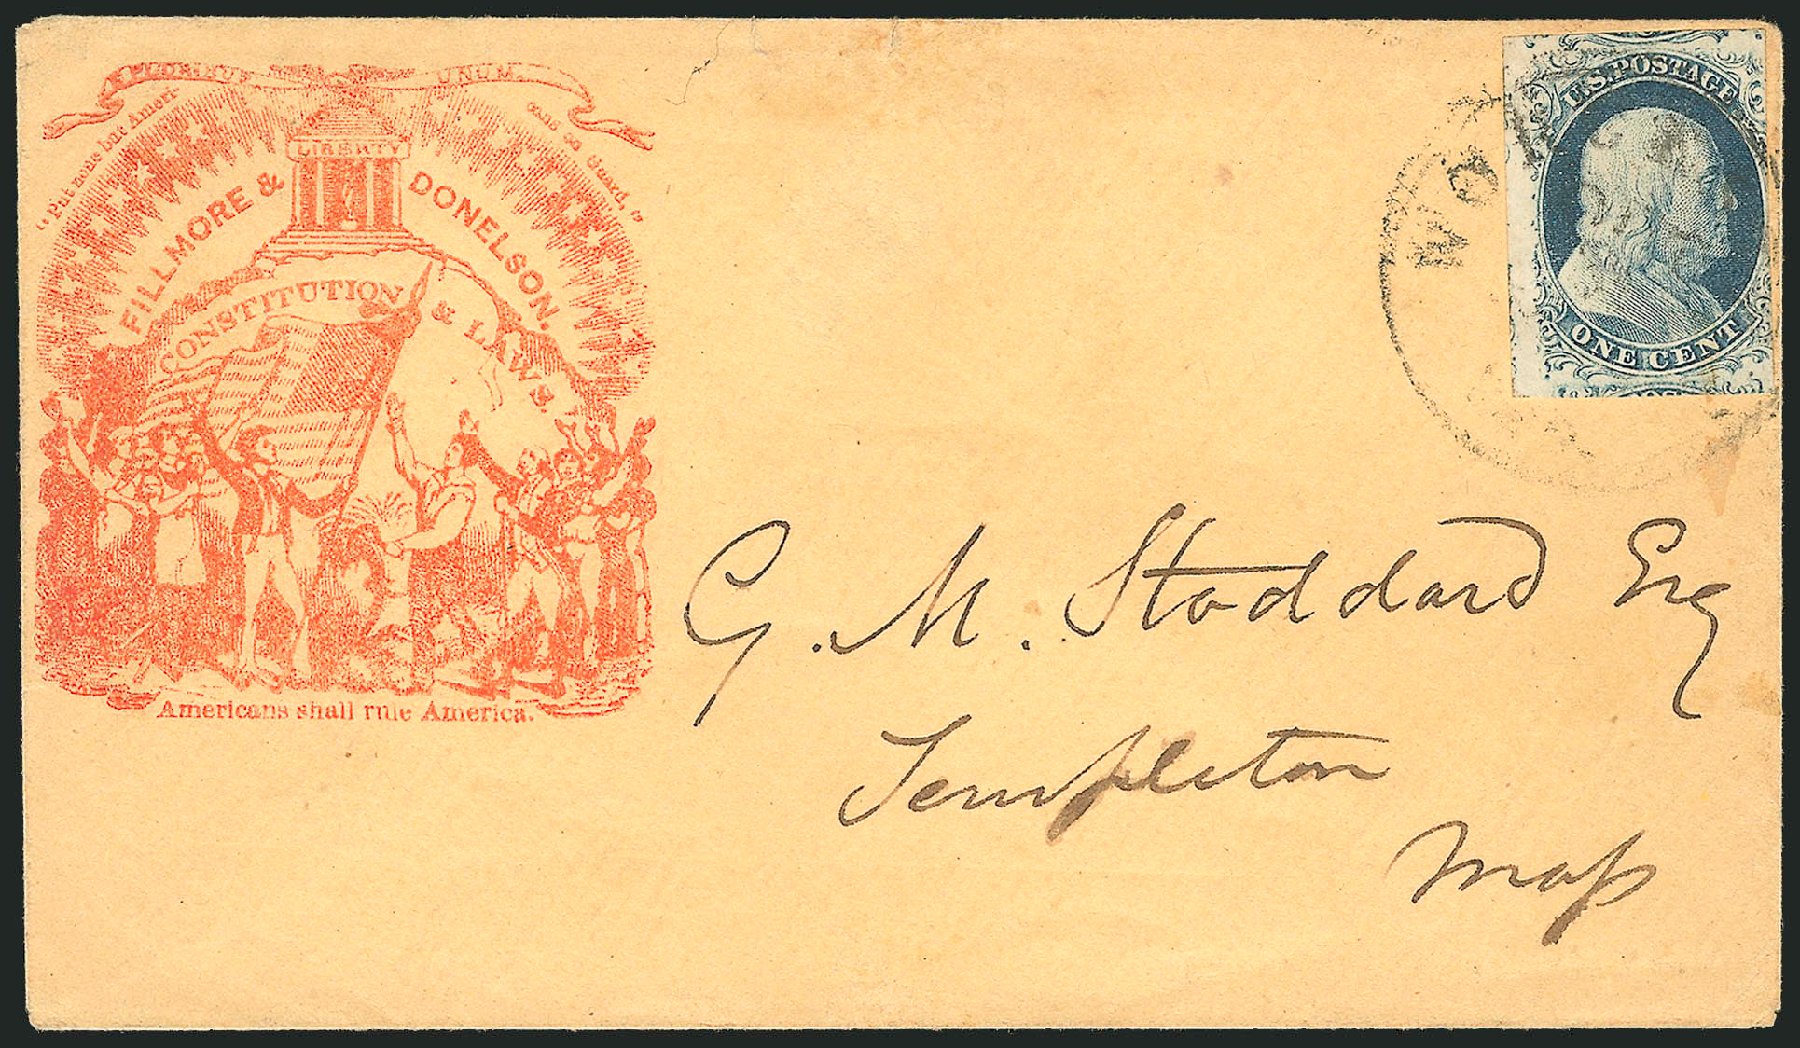 E PLURIBUS UNUM.
"Put none but Ameri-
cans on Guard,"
LIBERTY
FILLMORE & DONELSON.
CONSTITUTION & LAWS.
Americans shall rule America.
U.S. POSTAGE
ONE CENT
WOR
G. M. Stoddard Esq
Templeton
Mass